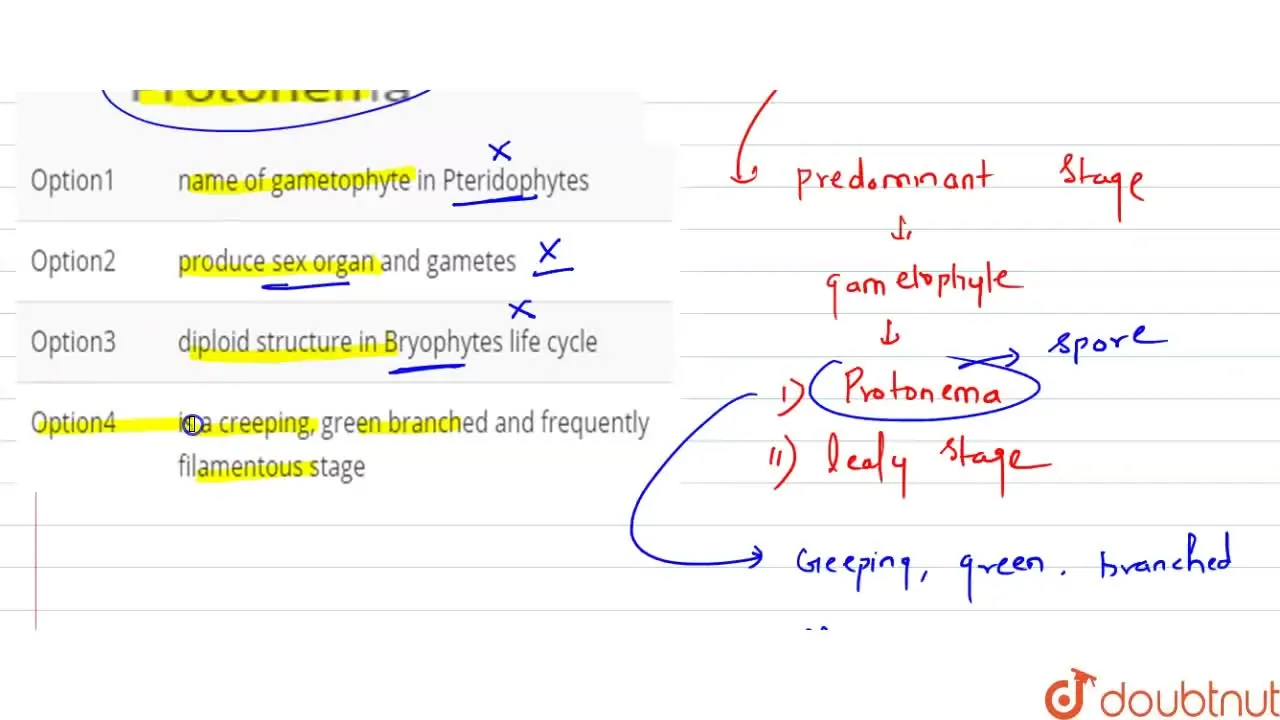 Protonema
Option1 name of gametophyte in Pteridophytes
Option2 produce sex organ and gametes
Option3 diploid structure in Bryophytes life cycle
Option4 is a creeping, green branched and frequently
filamentous stage
predominant stage
gametophyte
spore
i) Protonema
ii) leafy stage
Creeping, green. branched
doubtnut